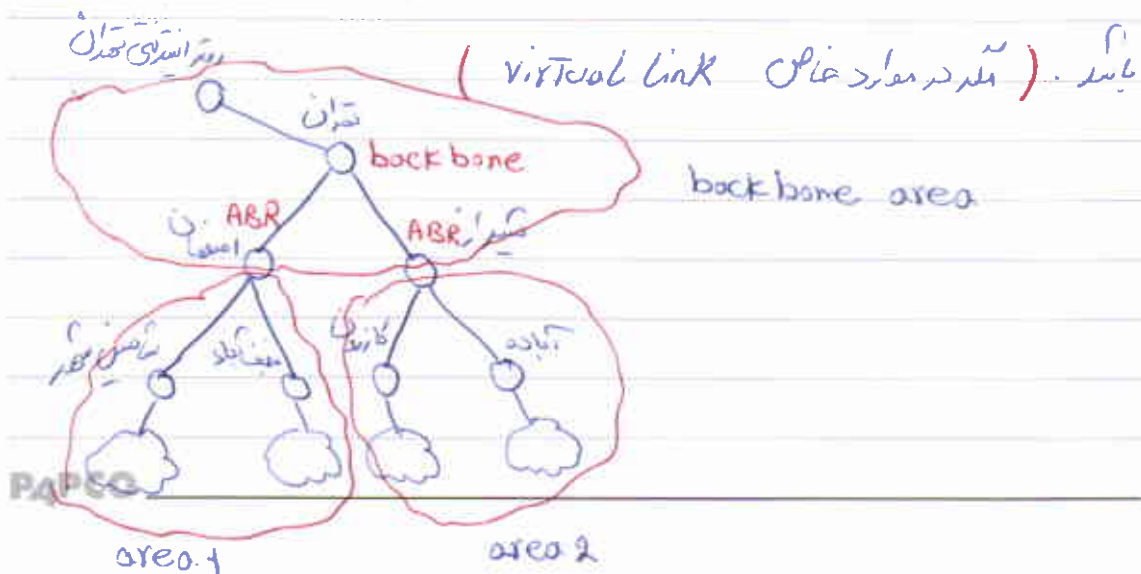 باشد. (مگر در موارد خاص virtual link)
روتر اینترنتی تهران
تهران
backbone
backbone area
ABR
اصفهان
ABR
شیراز
شاهین شهر
نجف آباد
کازرون
آباده
PAPCO
area 1
area 2